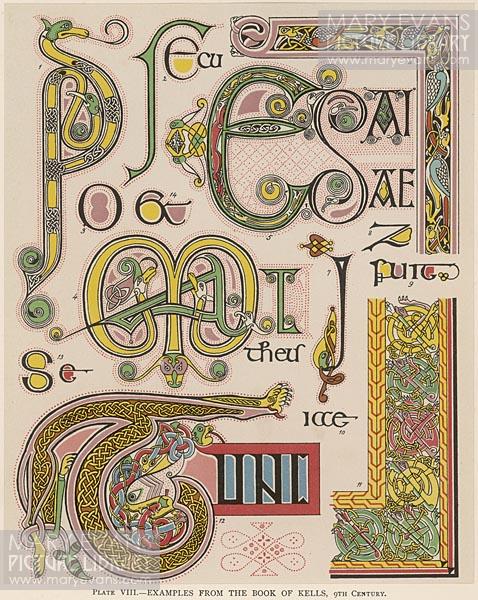 MARY EVANS
PICTURE LIBRARY
www.maryevans.com
1
2
ecu
ESAI
AE
3
4
5
14
8
z
9
7
MI
theus
13
Se
10
11
TUNC
12
MARY EVANS
PICTURE LIBRARY
www.maryevans.com
PLATE VIII.—EXAMPLES FROM THE BOOK OF KELLS, 9TH CENTURY.